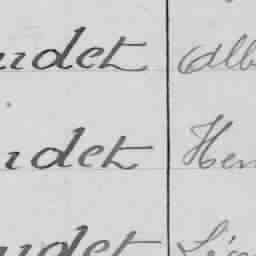 udet Alb
udet Hen
udet Léo